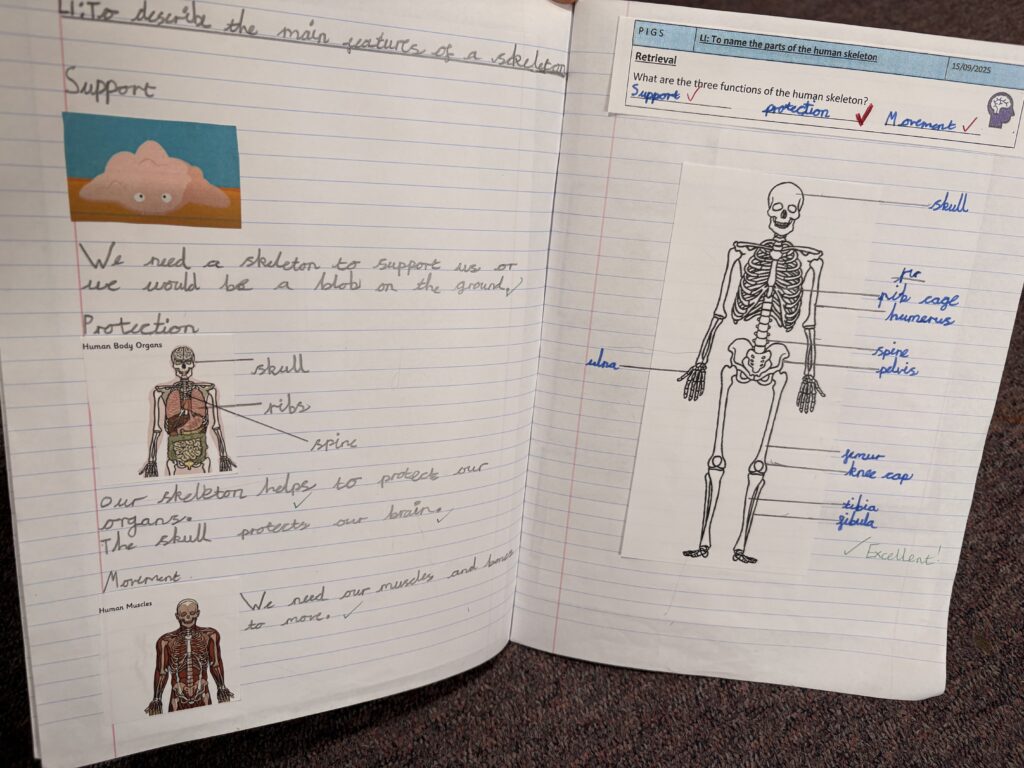 LI: To describe the main features of a skeleton
Support
We need a skeleton to support us or
we would be a blob on the ground.
Protection
Human Body Organs
skull
ribs
spine
Our skeleton helps to protect our
organs.
The skull protects our brain.
Movement
Human Muscles
We need our muscles and bones
to move.
PIGS
LI: To name the parts of the human skeleton
15/09/2025
Retrieval
What are the three functions of the human skeleton?
Support
protection
Movement
skull
rib cage
humerus
spine
pelvis
ulna
femur
knee cap
tibia
fibula
Excellent!